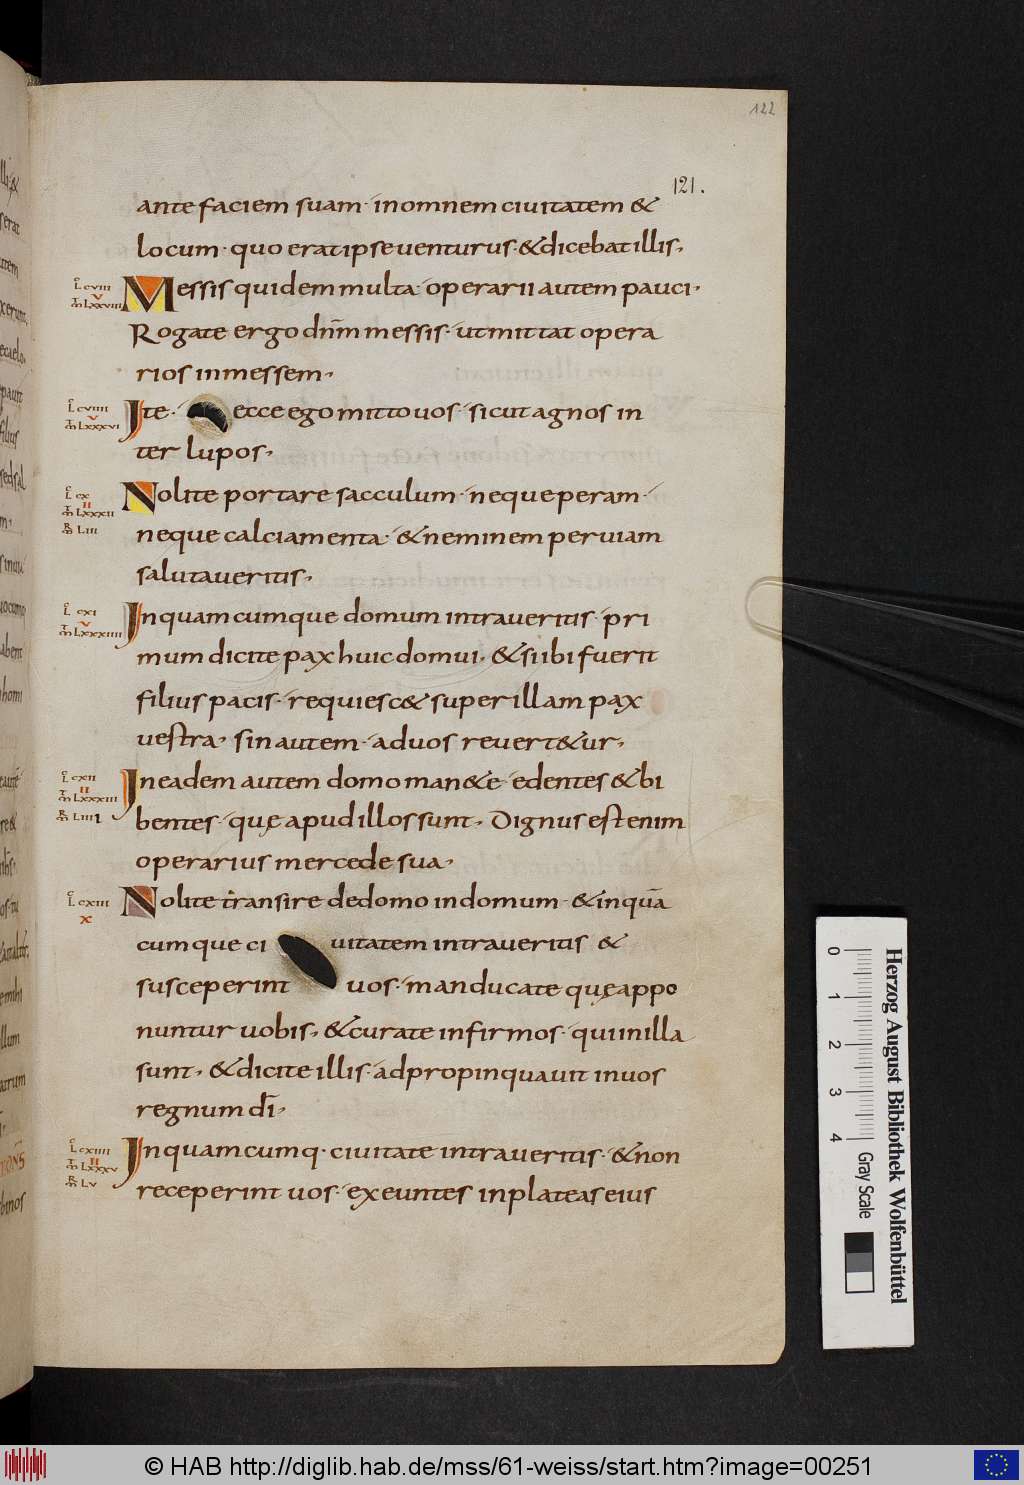 122
121.
ante faciem suam· inomnem ciuitatem &
locum· quo erat ipse uenturus· & dicebat illis,
L cviii
v
m̄ Lxxviii
Messis quidem multa· operarii autem pauci·
Rogate ergo dn̄m messis· ut mittat opera
rios inmessem,
L cviiii
v
m̄ Lxxxvi
Ite· ecce ego mitto uos· sicut agnos in
ter lupos,
L cx
ii
m̄ Lxxxii
m̄ Liii
Nolite portare sacculum· neque peram·
neque calciamenta· & neminem per uiam
salutaueritis,
L cxi
v
m̄ Lxxxiiii
Inquamcumque domum intraueritis· pri
mum dicite pax huic domui, & si ibi fuerit
filius pacis· requiesc& super illam pax
uestra, sin autem· ad uos reuert&ur,
L cxii
ii
m̄ Lxxxiii
m̄ Liiii
Ineadem autem domo man&e· edentes & bi
bentes· quę apud illos sunt, Dignus est enim
operarius mercede sua,
L cxiii
x
Nolite transire dedomo indomum· & inquā
cumque ci uitatem intraueritis &
susceperint uos· manducate quę appo
nuntur uobis, & curate infirmos· qui in illa
sunt, & dicite illis· adpropinquauit in uos
regnum dī,
L cxiiii
ii
m̄ Lxxxv
m̄ Lv
Inquamcumq· ciuitate intraueritis· & non
receperint uos· exeuntes inplateas eius
0 1 2 3 4
Gray Scale
Herzog August Bibliothek Wolfenbüttel
© HAB http://diglib.hab.de/mss/61-weiss/start.htm?image=00251